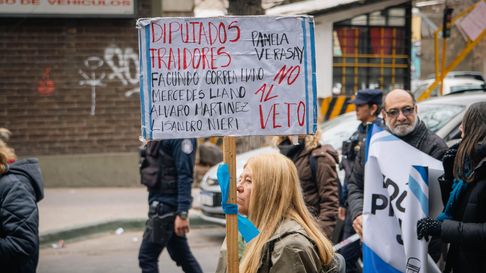 RO DE VEHICULOS
DIPUTADOS
TRAIDORES
PAMELA
VERASAY
FACUNDO CORREA LLANO
MERCEDES LLANO
ALVARO MARTINEZ
LISANDRO NIERI
NO
AL
VETO